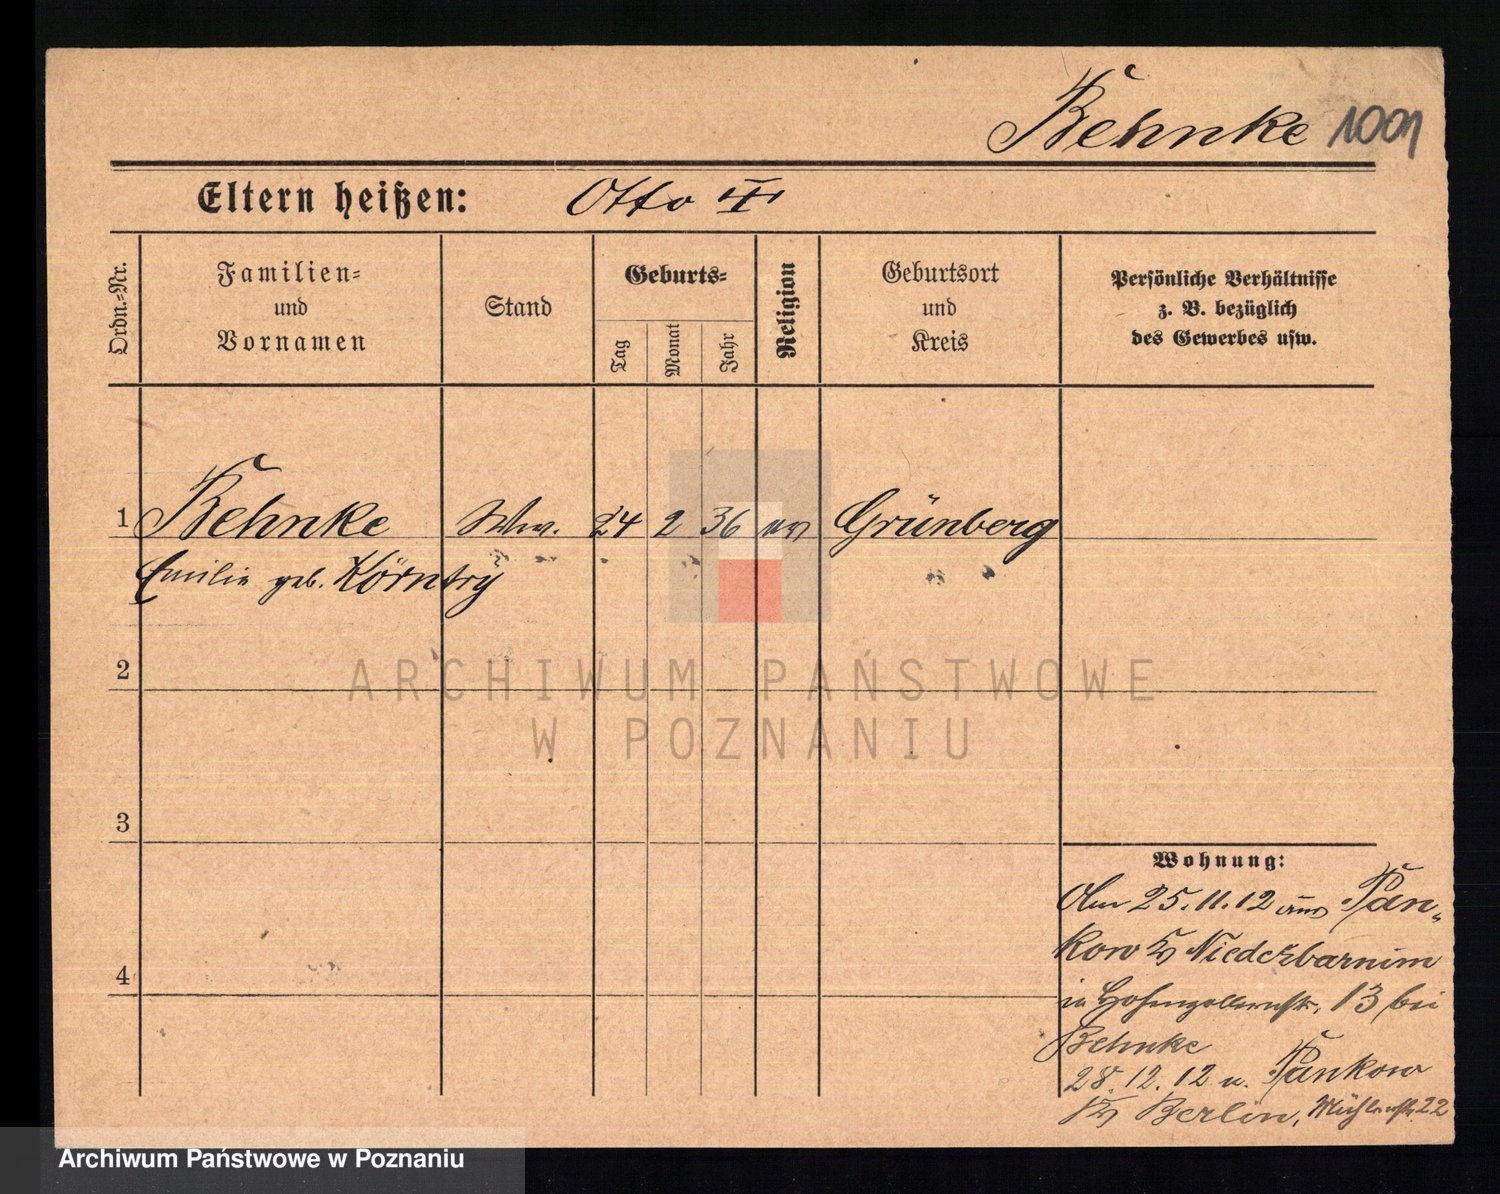 Behnke 1001
Eltern heißen: Otto III
Ordn.=Nr.
Familien=
und
Vornamen
Stand
Geburts=
Tag
Monat
Jahr
Religion
Geburtsort
und
Kreis
Persönliche Verhältnisse
z. B. bezüglich
des Gewerbes usw.
1 Behnke Ww. 24 2 36 ev Grünberg
Emilie geb.
2
3
4
Wohnung:
Am 25.11.12 aus Pan-
kow Kr Niederbarnim
in Hohenzollernstr. 13 bei
Behnke
28.12.12 n. Pankow
Kr Berlin, Mühlenstr. 22
ARCHIWUM PAŃSTWOWE
W POZNANIU
Archiwum Państwowe w Poznaniu